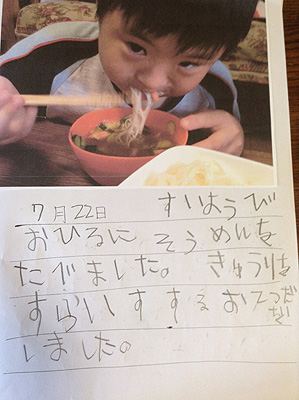 7月22日 すいようび
おひるに そうめんを
たべました。 きゅうりを
すらいすする おてつだいを
しました。